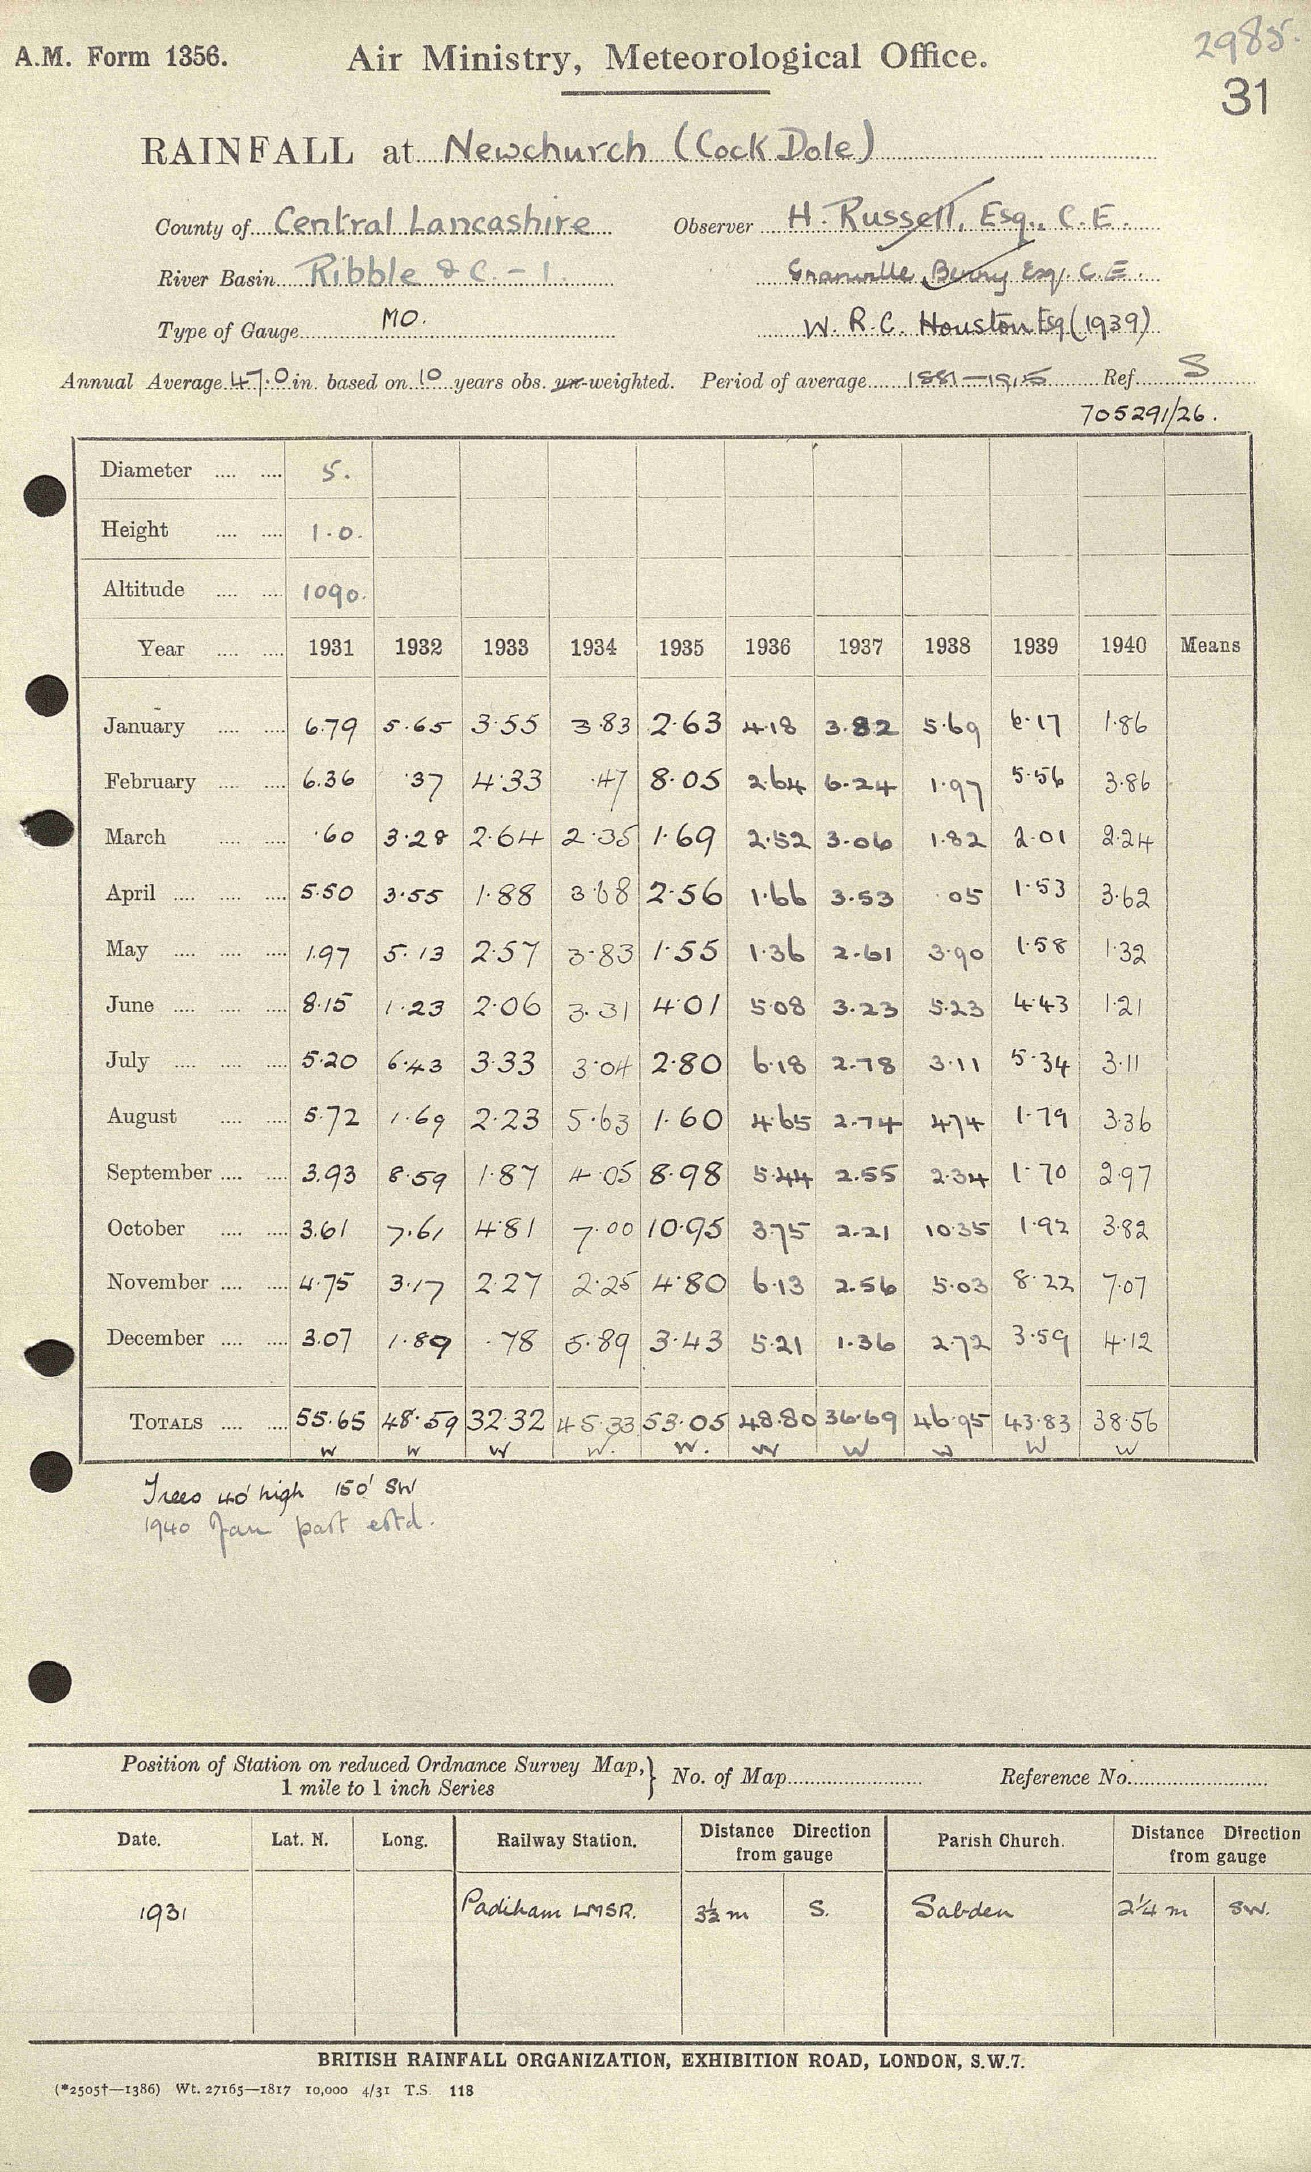 2985.
31
A.M. Form 1356.
Air Ministry, Meteorological Office.
RAINFALL at Newchurch (Cock Dole)
County of Central Lancashire Observer H. Russell, Esq., C.E.
River Basin Ribble & C. - 1. Granville Berry Esq. C.E.
Type of Gauge MO. W. R.C. Houston Esq (1939)
Annual Average 47.0 in. based on 10 years obs. un-weighted. Period of average 1881-1915 Ref. S
705291/26.
Diameter .... .... 5.
Height .... .... 1.0.
Altitude .... .... 1090.
Year .... .... 1931 1932 1933 1934 1935 1936 1937 1938 1939 1940 Means
January .... .... 6.79 5.65 3.55 3.83 2.63 4.18 3.82 5.69 6.17 1.86
February .... .... 6.36 .37 4.33 .47 8.05 2.64 6.24 1.97 5.56 3.86
March .... .... .60 3.28 2.64 2.35 1.69 2.52 3.06 1.82 2.01 2.24
April .... .... .... 5.50 3.55 1.88 3.68 2.56 1.66 3.53 .05 1.53 3.62
May .... .... .... 1.97 5.13 2.57 3.83 1.55 1.36 2.61 3.90 1.58 1.32
June .... .... .... 8.15 1.23 2.06 3.31 4.01 5.08 3.23 5.23 4.43 1.21
July .... .... .... 5.20 6.43 3.33 3.04 2.80 6.18 2.78 3.11 5.34 3.11
August .... .... 5.72 1.69 2.23 5.63 1.60 4.65 2.74 4.74 1.79 3.36
September .... .... 3.93 8.59 1.87 4.05 8.98 5.44 2.55 2.34 1.70 2.97
October .... .... 3.61 7.61 4.81 7.00 10.95 3.75 2.21 10.35 1.92 3.82
November .... .... 4.75 3.17 2.27 2.25 4.80 6.13 2.56 5.03 8.22 7.07
December .... .... 3.07 1.89 .78 5.89 3.43 5.21 1.36 2.72 3.59 4.12
TOTALS .... .... 55.65 48.59 32.32 45.33 53.05 48.80 36.69 46.95 43.83 38.56
W W W W. W. W W W W W
Trees 40' high 150' SW
1940 Jan part estd.
Position of Station on reduced Ordnance Survey Map,} No. of Map Reference No.
1 mile to 1 inch Series
Date. Lat. N. Long. Railway Station. Distance Direction from gauge Parish Church. Distance Direction from gauge
1931 Padiham LMSR. 3½ m S. Sabden 2¼ m SW.
BRITISH RAINFALL ORGANIZATION, EXHIBITION ROAD, LONDON, S.W.7.
(*2505†—1386) Wt. 27165—1817 10,000 4/31 T.S. 118